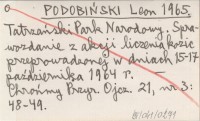 PODOBIŃSKI Leon 1965.
Tatrzański Park Narodowy. Spra-
wozdanie z akcji liczenia kozic
przeprowadzonej w dniach 15-17
października 1964 r. -
Chrońmy Przyr. Ojcz. 21, nr. 3:
48-49.